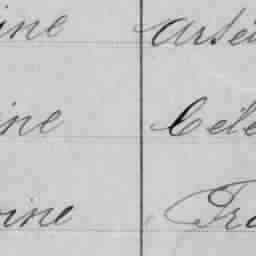 ine Arsè
ine Céle
oine Fra